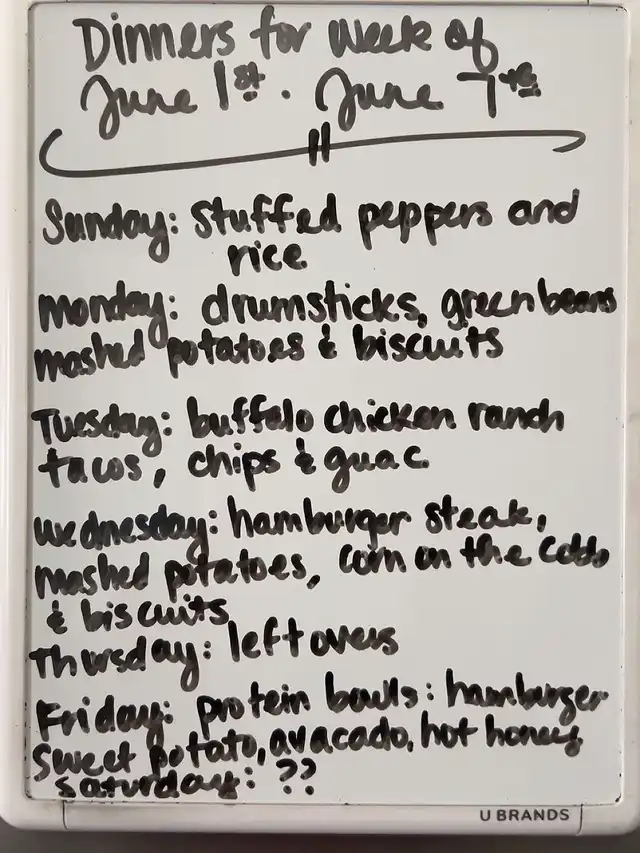 Dinners for week of
June 1st. June 7th
Sunday: Stuffed peppers and
rice
Monday: drumsticks, green beans
mashed potatoes & biscuits
Tuesday: buffalo chicken ranch
tacos, chips & guac.
Wednesday: hamburger steak,
mashed potatoes, corn on the cobb
& biscuits
Thursday: leftovers
Friday: protein bowls: hamburger
Sweet potato, avacado, hot honey
Saturday: ??
U BRANDS